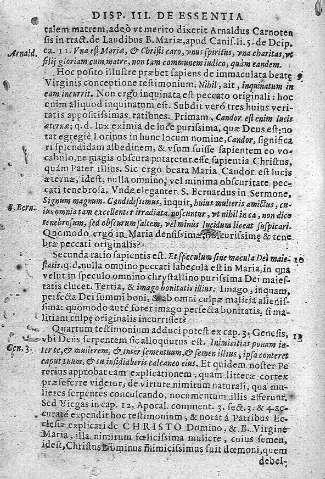 DISP. III. DE ESSENTIA
talem matrem, adeò vt merito dixerit Arnaldus Carnoten
sis in tract. de Laudibus B. Mariæ, apud Canis. li. 5. de Deip.
Arnald.
ca. 21. Vna est Mariæ, & Christi caro, vnus spiritus, vna charitas, vt
filij gloriam cum matre, non tam communem iudico, quàm eandem.
Hoc posito illustre præbet sapiens de immaculata beatę
Virginis conceptione testimonium. Nihil, ait, inquinatum in
eam incurrit. Non ergo inquinata est peccato originali: hoc
enim aliquod inquinatum est. Subdit verò tres huius veri-
tatis appositissimas rationes. Primam, Candor est enim lucis
æternæ; q. d. lux eximia de luce purissima, quæ Deus est;
splendidam albedinem, & vsum suisse sapientem eo vo-
cabulo, ne magis obscura putaretur esse sapientia Christus,
quàm Pater illius. Sic ergo beata Maria Candor est lucis
æternæ, id est, nulla omnino, vel minima obscuritate pec-
cati tenebrosa. Vnde eleganter S. Bernardus in Sermone,
S. Bern.
Signum magnum. Candidissimus, inquit, huius mulieris amictus,
omnia tam excellenter irradiata noscuntur, vt nihil in ea, non dico
tenebrosum, sed obscurum saltem, vel minus lucidum liceat suspicari.
Quomodo ergo in Maria densissimæ, obscurissimę & tene
bræ peccati originalis?
Secunda ratio sapientis est. Et speculum sine macula Dei maie-
20
statis. q. d. nulla omnino peccati labecula est in Maria, in qua
velut in speculo omnino chrystallino purissima Dei maies-
tatis elucet. Tertia, & imago bonitatis illius. Imago, inquam,
perfecta Dei summi boni, ab omni culpæ malitia alienis-
sima: quomodo autē foret imago perfecta bonitatis, si ma-
litiam culpæ originalis incurrisset?
Quartum testimonium adduci potest ex cap. 3. Genesis,
vbi Deus serpentem sic alloquutus est. Inimicitias ponam in-
Gen. 3.
ter te, & mulierem, & inter semen tuum, & semen illius, ipsa conteret
caput tuum, & tu insidiaberis calcaneo eius. Et quidem noster Pe
rerius approbat eam explicationem, quam litteræ cortex
præseferre videtur, de virtute nimirum naturali, qua mu-
lieres serpentes conculcando, nocumentum illis afferunt.
Sed Viegas in cap. 12. Apocal. comment. 3. sect. 3. & 4.
expendit hoc testimonium, & notat à Patribus Ec-
clesiæ explicari de CHRISTO Domino, & B. Virgine
Maria, illa nimirum fœlicissima muliere, cuius semen,
id est, Christus Dominus inimicissimus fuit dœmoni, quem
debel-